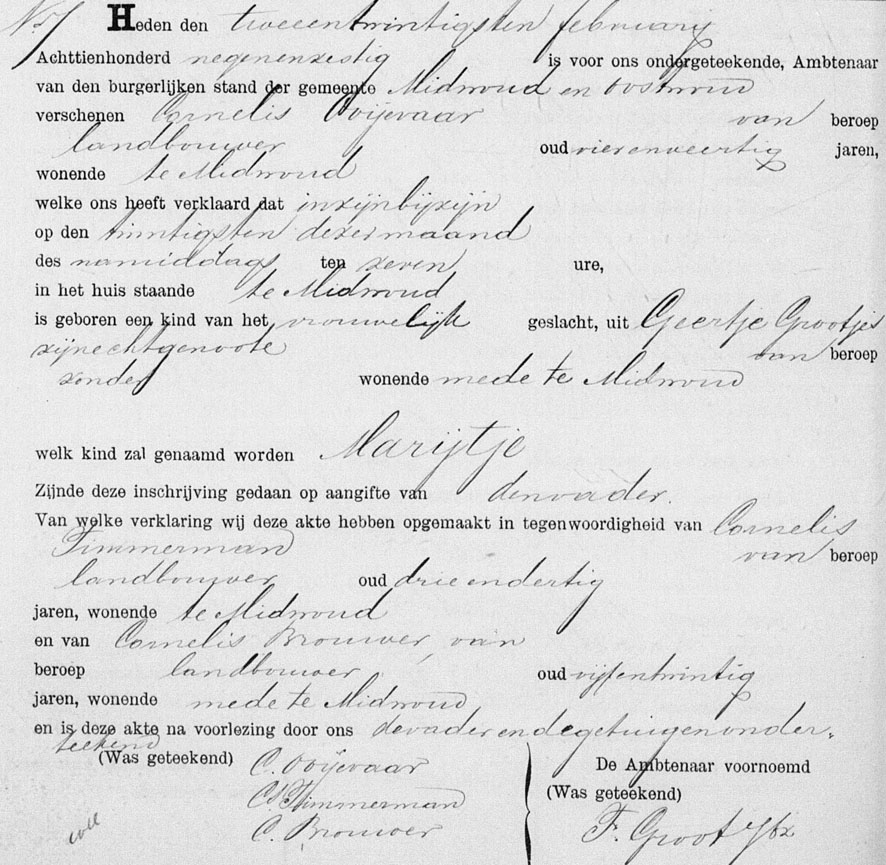 No 7 Heden den tweeentwintigsten februarij
Achttienhonderd negenenzestig is voor ons ondergeteekende, Ambtenaar
van den burgerlijken stand der gemeente Midwoud en Oostwoud
verschenen Cornelis Ooijevaar van beroep
landbouwer oud vierenveertig jaren,
wonende te Midwoud
welke ons heeft verklaard dat in zijn bijzijn
op den twintigsten dezer maand
des namiddags ten zeven ure,
in het huis staande te Midwoud
is geboren een kind van het vrouwelijk geslacht, uit Geertje Grootjes
zijne echtgenoote van beroep
zonder wonende mede te Midwoud
welk kind zal genaamd worden Marijtje
Zijnde deze inschrijving gedaan op aangifte van den vader.
Van welke verklaring wij deze akte hebben opgemaakt in tegenwoordigheid van Cornelis
Timmerman van beroep
landbouwer oud drie en dertig
jaren, wonende te Midwoud
en van Cornelis Brouwer, van
beroep landbouwer oud vijfentwintig
jaren, wonende mede te Midwoud
en is deze akte na voorlezing door ons de vader en de getuigen onder-
teekend
(Was geteekend) C. Ooijevaar
Cs Timmerman
C. Brouwer
De Ambtenaar voornoemd
(Was geteekend)
F. Groot